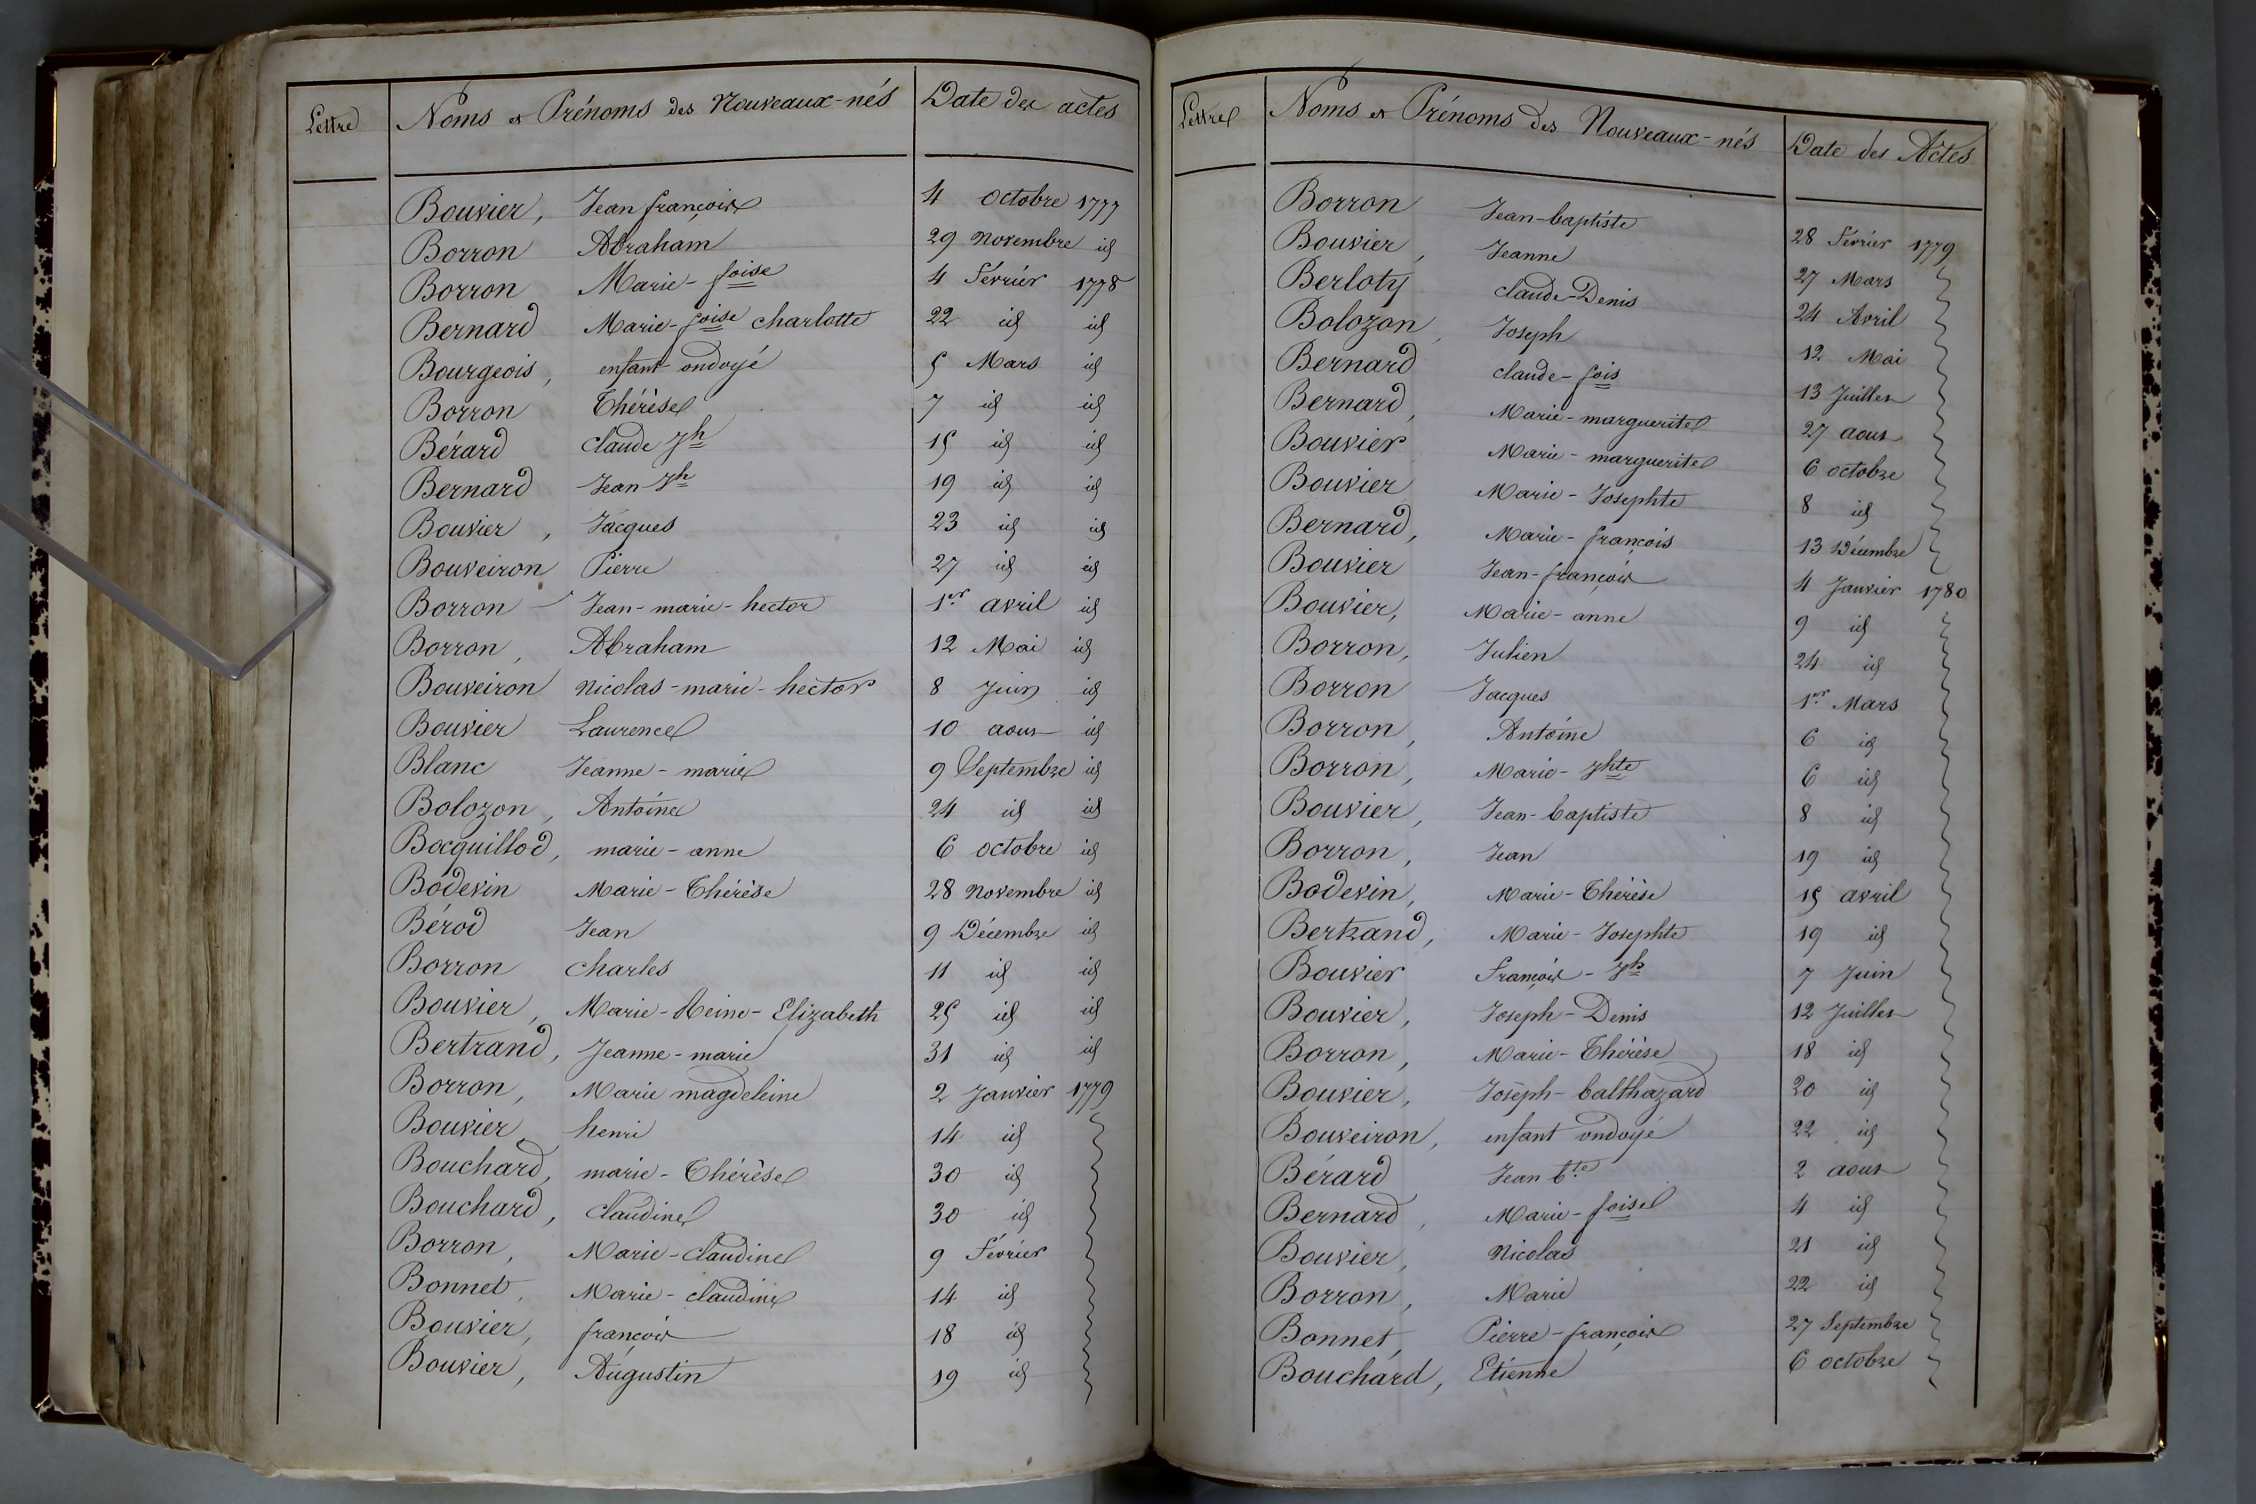 Lettre Noms et Prénoms des Nouveaux-nés Date des actes
Bouvier, Jean françois 4 octobre 1777
Borron Abraham 29 novembre id
Borron Marie-foise 4 Février 1778
Bernard Marie-foise charlotte 22 id id
Bourgeois, enfant ondoyé 5 Mars id
Borron Thérèse 7 id id
Bérard claude Jh 15 id id
Bernard Jean Jh 19 id id
Bouvier, Jacques 23 id id
Bouveiron Pierre 27 id id
Borron Jean-marie-hector 1er avril id
Borron, Abraham 12 Mai id
Bouveiron Nicolas-marie-hector 8 Juin id
Bouvier Laurence 10 aout id
Blanc Jeanne-marie 9 Septembre id
Bolozon, Antoine 24 id id
Bocquillod, marie-anne 6 octobre id
Bodevin Marie-Thérèse 28 novembre id
Bérod Jean 9 Décembre id
Borron charles 11 id id
Bouvier, Marie-Reine-Elizabeth 25 id id
Bertrand, Jeanne-marie 31 id id
Borron, Marie magdeleine 2 Janvier 1779
Bouvier henri 14 id
Bouchard, marie-Thérèse 30 id
Bouchard, claudine 30 id
Borron, Marie-claudine 9 Février
Bonnet, Marie-claudine 14 id
Bouvier, françois 18 id
Bouvier, Augustin 19 id
Lettre Noms et Prénoms des Nouveaux-nés Date des Actes
Borron Jean-baptiste 28 Février 1779
Bouvier, Jeanne 27 Mars
Berloty claude-Denis 24 Avril
Bolozon, Joseph 12 Mai
Bernard claude-fois 13 Juillet
Bernard, Marie-marguerite 27 aout
Bouvier Marie-marguerite 6 octobre
Bouvier Marie-Josephte 8 id
Bernard, Marie-françois 13 Décembre
Bouvier Jean-françois 4 Janvier 1780
Bouvier, Marie-anne 9 id
Borron, Julien 24 id
Borron Jacques 1er Mars
Borron, Antoine 6 id
Borron, Marie-Jhte 6 id
Bouvier, Jean-baptiste 8 id
Borron, Jean 19 id
Bodevin, Marie-Thérèse 15 avril
Bertrand, Marie-Josephte 19 id
Bouvier françois-Jh 7 Juin
Bouvier, Joseph-Denis 12 Juillet
Borron, Marie-Thérèse 18 id
Bouvier, Joseph-balthazard 20 id
Bouveiron, enfant ondoyé 22 id
Bérard Jean bte 2 aout
Bernard, Marie-foise 4 id
Bouvier, Nicolas 21 id
Borron, Marie 22 id
Bonnet, Pierre-françois 27 Septembre
Bouchard, Etienne 6 octobre